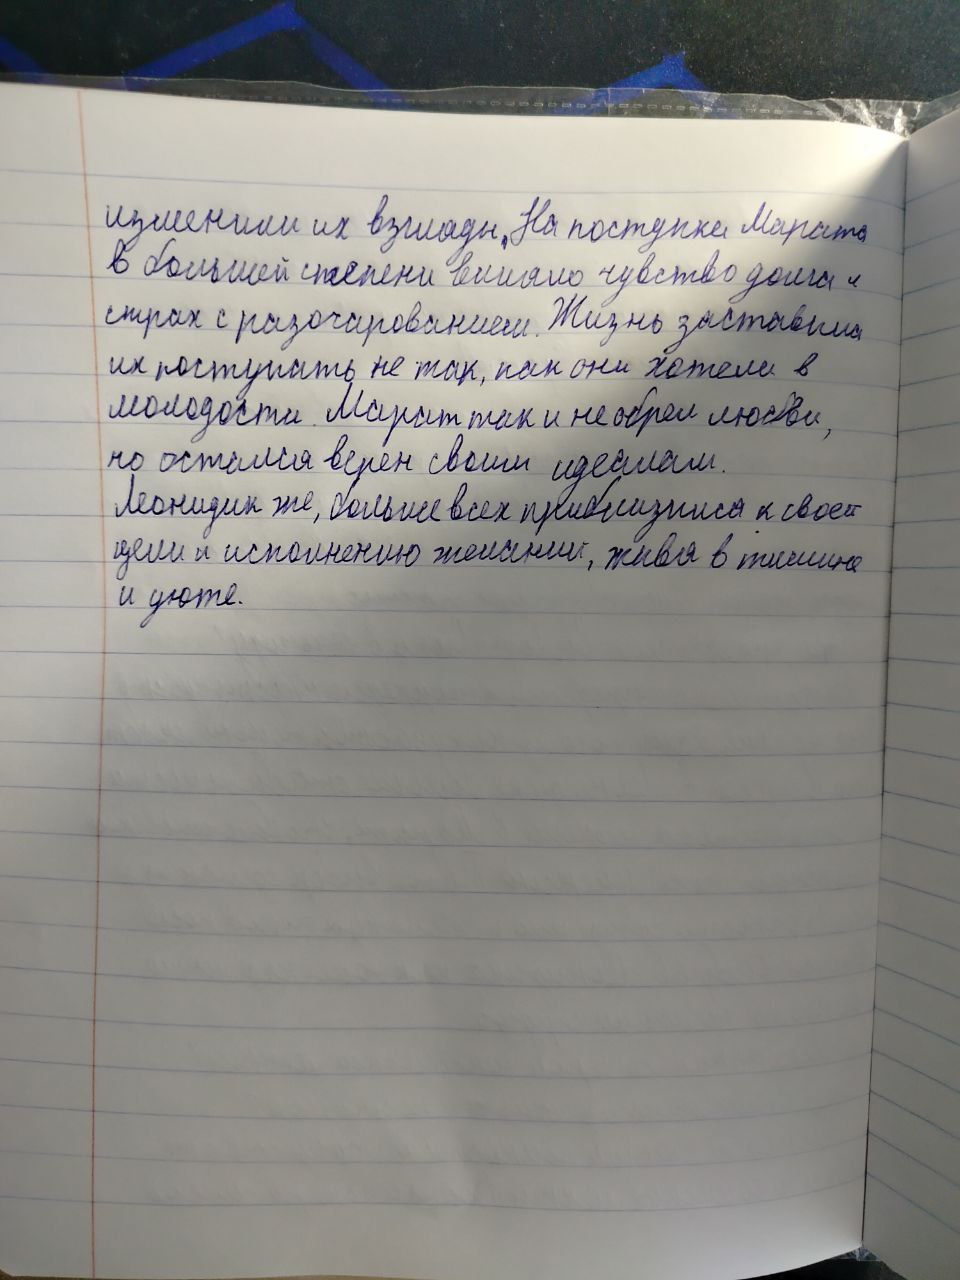 изменили их взгляды. На поступки Марата
в большей степени влияло чувство долга и
страх с разочарованием. Жизнь заставила
их поступать не так, как они хотели в
молодости. Марат так и не обрел любви,
но остался верен своим идеалам.
Леонидик же, больше всех приблизился к своей
цели и исполнению желаний, живя в тишине
и уюте.